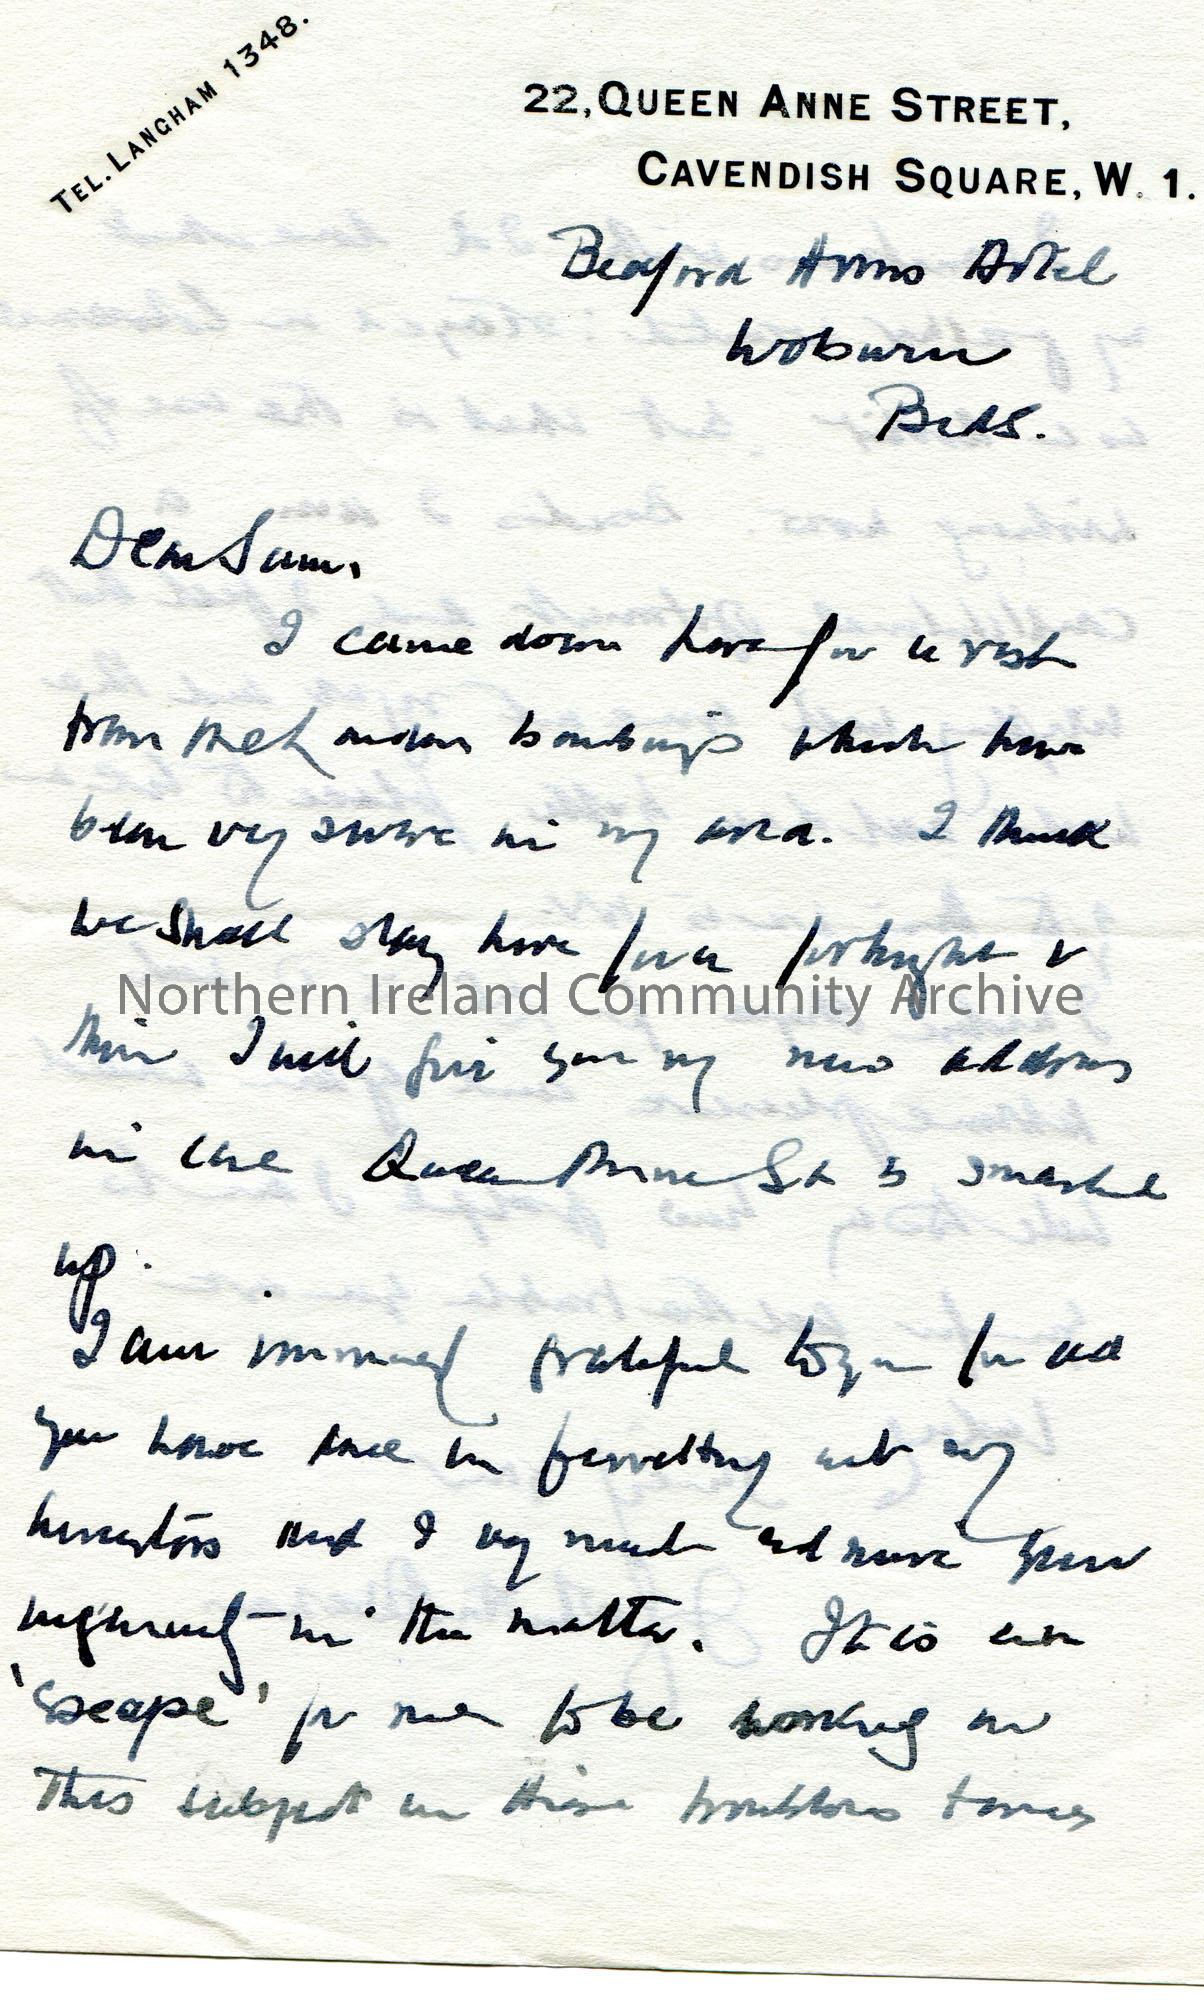 TEL. LANGHAM 1348.
22, QUEEN ANNE STREET,
CAVENDISH SQUARE, W. 1.
Bedford Arms Hotel
Woburn
Beds.
Dear Sam,
I came down here for a rest
from the London bombings which have
been very severe in my area. I think
we shall stay here for a fortnight &
then I will give you my new address
in case Queen Anne St is smashed
up.
I am immensely grateful to you for all
you have done in ferretting out my
ancestors and I very much admire your
ingenuity in the matter. It is an
'escape' for me to be working on
this subject in these troublous times
Northern Ireland Community Archive